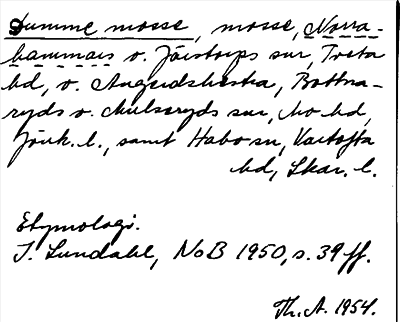 Dumme mosse, mosse, Norra-
hammars o. Järstorps snr, Tveta
hd, o. Angerdshestra, Bottna-
ryds o. Mulseryds snr, Mo hd,
Jönk. l., samt Habo sn, Vartofta
hd, Skar. l.
Etymologi.
I. Lundahl, NoB 1950, s. 39 ff.
Th. A. 1954.